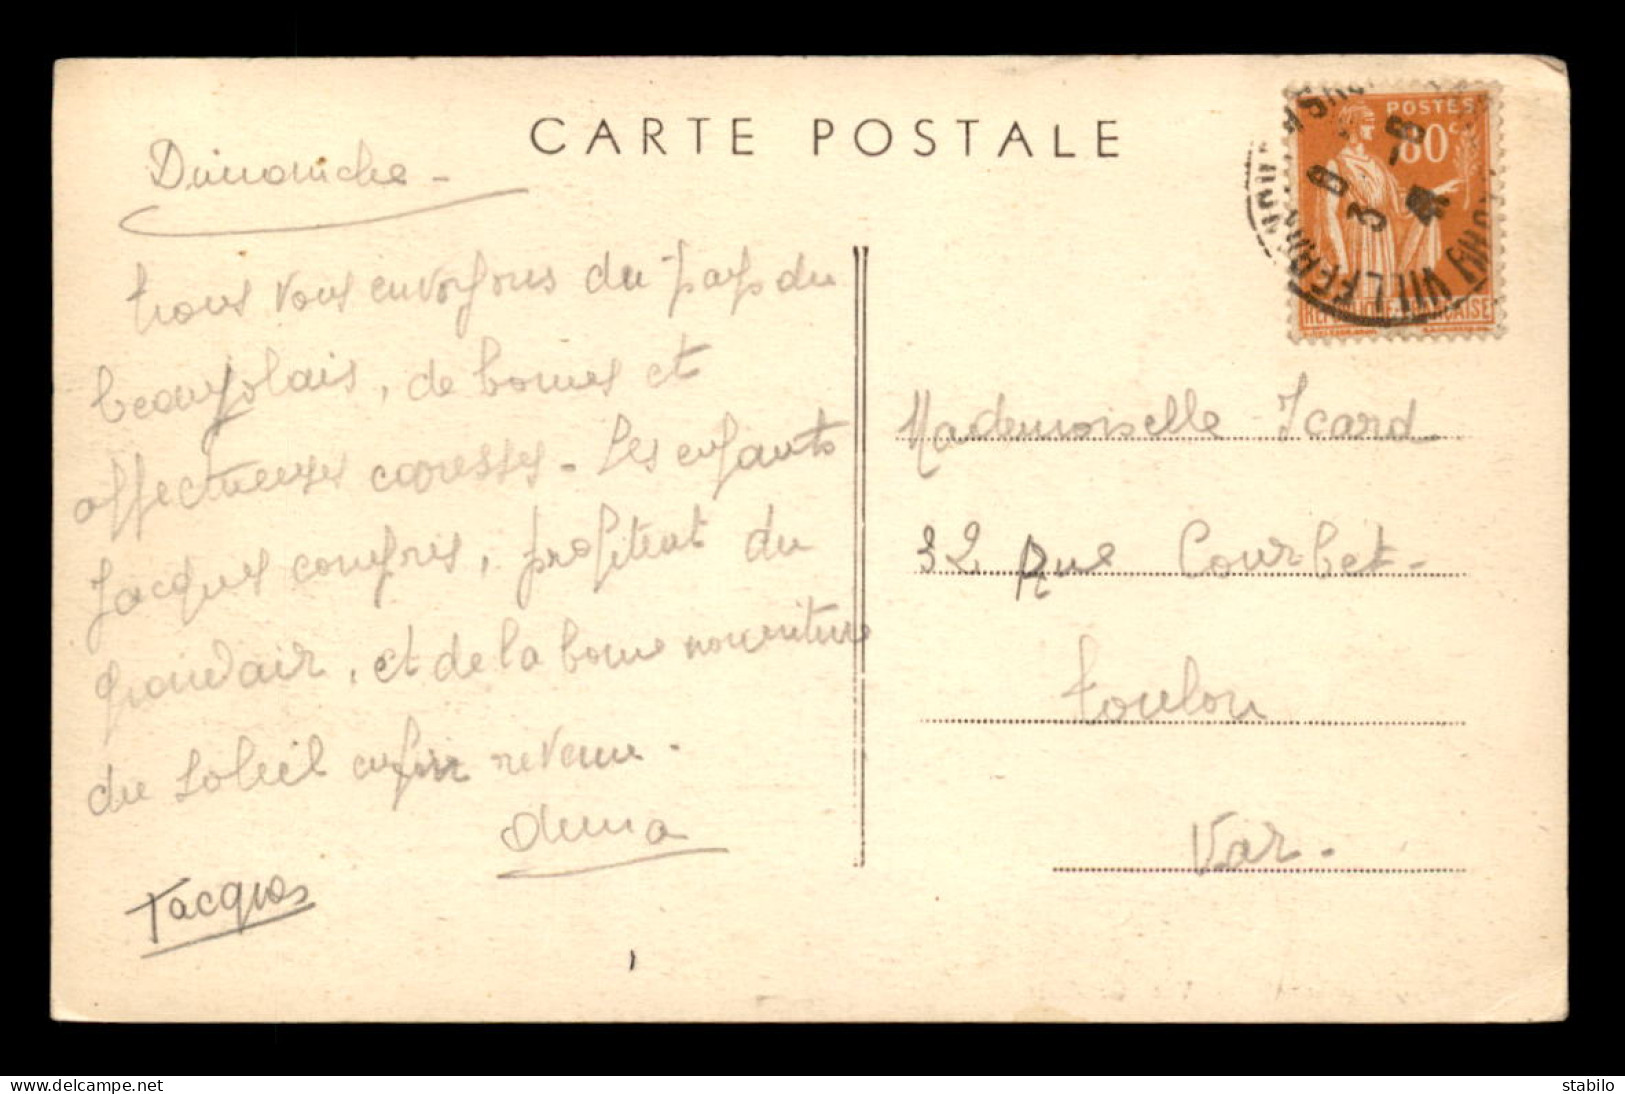 CARTE POSTALE
Dimanche -
nous vous envoyons du pays du
beaujolais, de bonnes et
affectueuses caresses - Les enfants
Jacques compris, profitent du
grand air, et de la bonne nourriture
du soleil enfin revenu.
Jacques
POSTES
80c
REPUBLIQUE FRANÇAISE
VILLEFRANCHE
Mademoiselle Icard
32 Rue Courbet-
Toulon
Var.
delcampe.net
stabilo